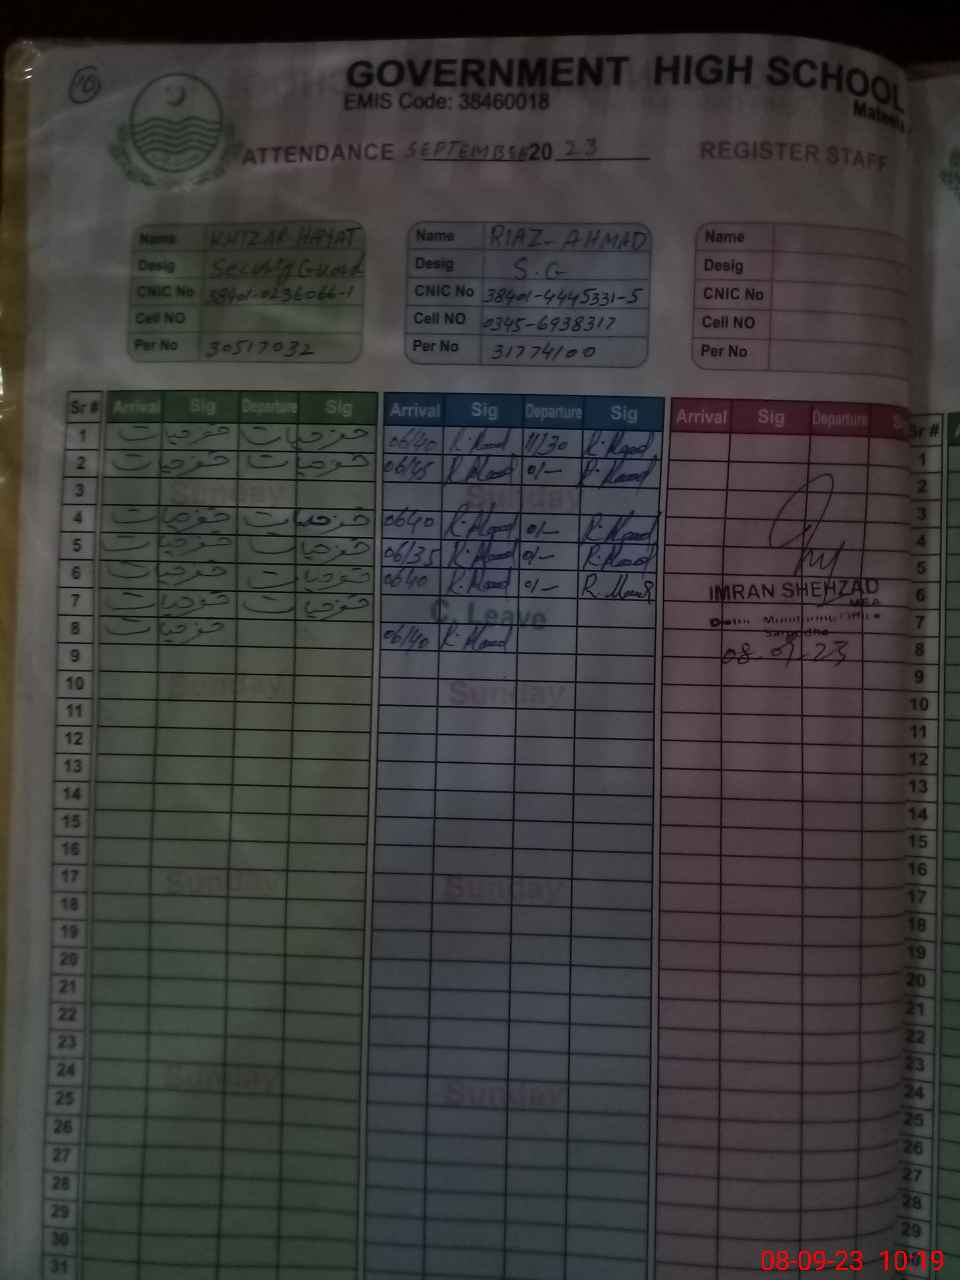 10
GOVERNMENT HIGH SCHOOL
EMIS Code: 38460018
ATTENDANCE SEPTEMBER 2023 REGISTER STAFF
Name KHIZAR HAYAT
Desig Security Guard
CNIC No 38401-0236066-1
Cell NO
Per No 30517032
Name RIAZ-AHMAD
Desig S.G
CNIC No 38401-4445331-5
Cell NO 0345-6938317
Per No 31774100
Name
Desig
CNIC No
Cell NO
Per No
Sr # Arrival Sig Departure Sig Arrival Sig Departure Sig Arrival Sig Departure Sr #
1 خضر حیات خضر حیات 06/40 11/30 1
2 خضر حیات خضر حیات 06/45 0/- 2
3 Sunday Sunday 3
4 خضر حیات خضر حیات 0640 0/- 4
5 خضر حیات خضر حیات 06/35 0/- 5
6 خضر حیات خضر حیات 0640 0/- 6
IMRAN SHEHZAD
MEA
7 خضر حیات خضر حیات C. Leave 7
Sargodha
8 خضر حیات 06/40 8
08-09-23
9 9
10 Sunday Sunday 10
11 11
12 12
13 13
14 14
15 15
16 16
17 Sunday Sunday 17
18 18
19 19
20 20
21 21
22 22
23 23
24 Sunday Sunday 24
25 25
26 26
27 27
28 28
29 29
30
31
08-09-23 10:19